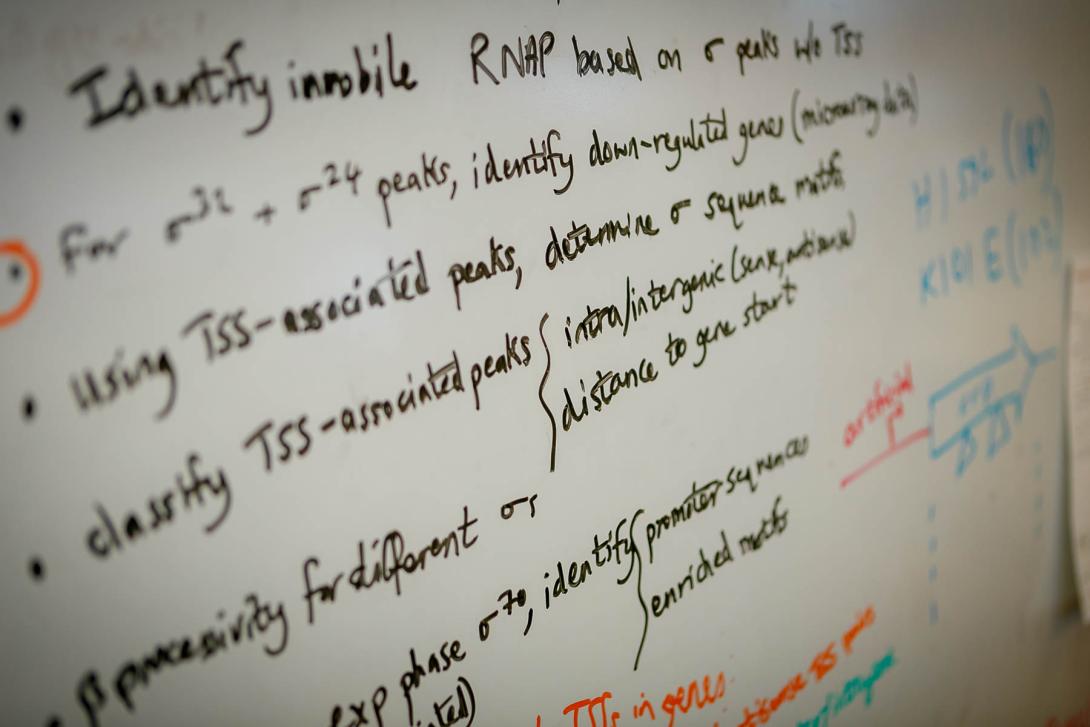 • Identify immobile RNAP based on σ peaks w/o TSS
• For σ³² + σ²⁴ peaks, identify down-regulated genes (microarray data)
• Using TSS-associated peaks, determine σ sequence motifs
• classify TSS-associated peaks { intra/intergenic (sense, antisense)
distance to gene start
β processivity for different σs
exp phase σ⁷⁰, identify { promoter sequences
enriched motifs
TSSs in genes
antisense TSS
artificial
K101E